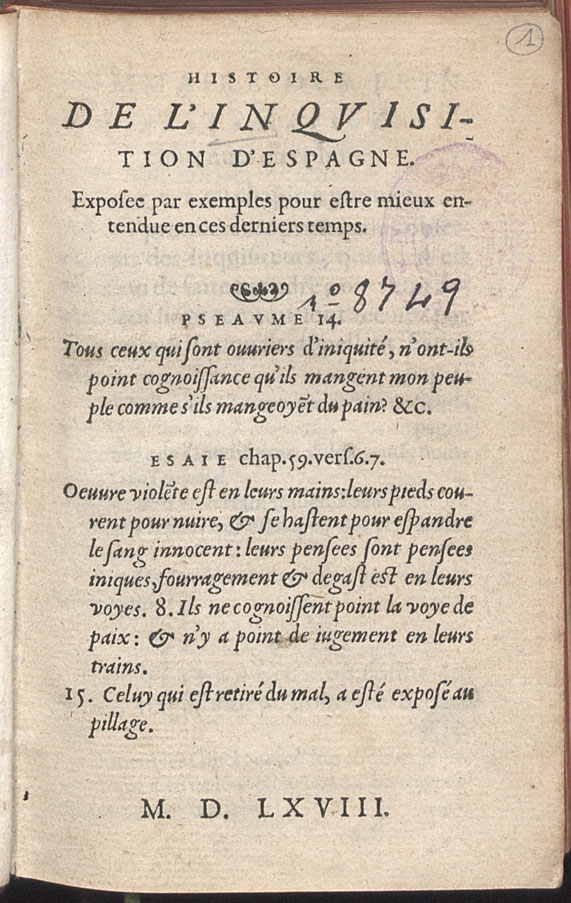 1
HISTOIRE
DE L'INQVISI-
TION D'ESPAGNE.
Exposee par exemples pour estre mieux en-
tendue en ces derniers temps.
1º 8749
PSEAVME 14.
Tous ceux qui sont ouuriers d'iniquité, n'ont-ils
point cognoissance qu'ils mangent mon peu-
ple comme s'ils mangeoyẽt du pain? &c.
ESAIE chap.59.vers.6.7.
Oeuure violẽte est en leurs mains:leurs pieds cou-
rent pour nuire, & se hastent pour espandre
le sang innocent: leurs pensees sont pensees
iniques,fourragement & degast est en leurs
voyes. 8. Ils ne cognoissent point la voye de
paix: & n'y a point de iugement en leurs
trains.
15. Celuy qui est retiré du mal, a esté exposé au
pillage.
M. D. LXVIII.